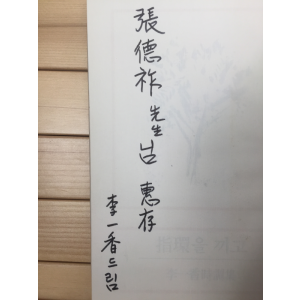 張德祚先生 惠存
李一香드림